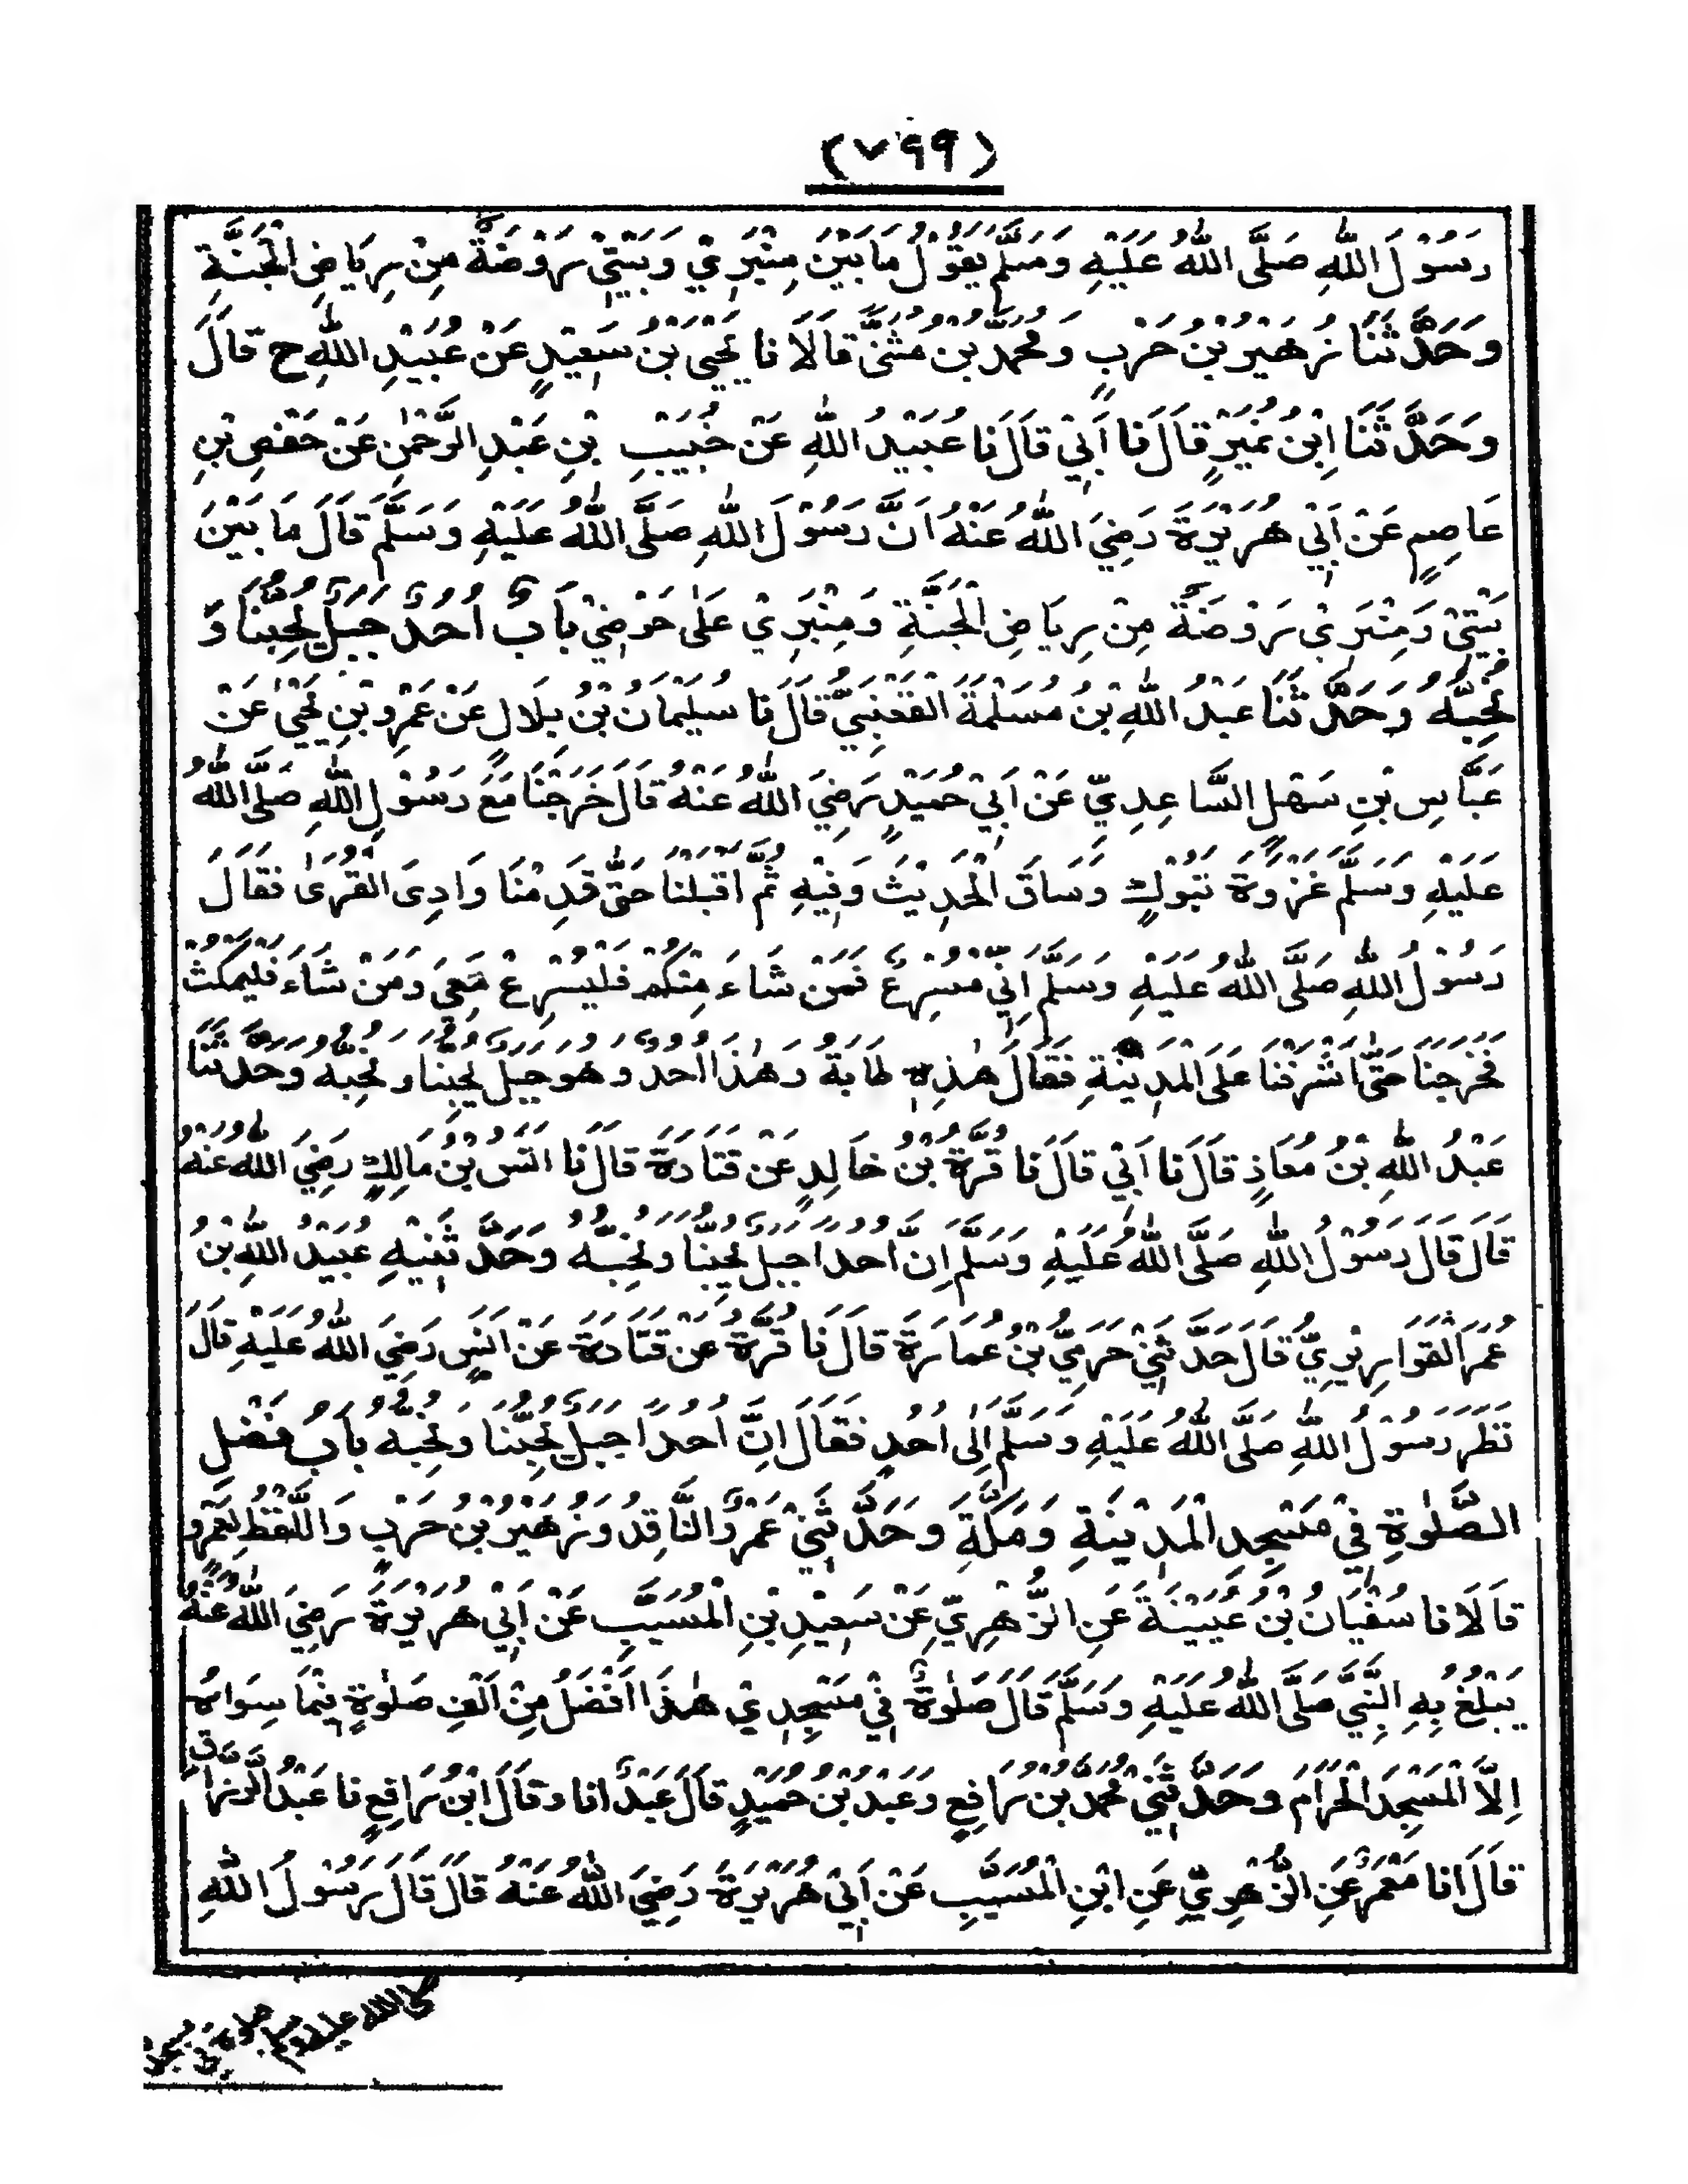 (٧٩٩)
رَسُوْلَ اللّٰهِ صَلَّى اللّٰهُ عَلَيْهِ وَسَلَّمَ يَقُوْلُ مَا بَيْنَ مِنْبَرِيْ وَبَيْتِيْ رَوْضَةٌ مِنْ رِيَاضِ الْجَنَّةِ
وَحَدَّثَنَا زُهَيْرُ بْنُ حَرْبٍ وَمُحَمَّدُ بْنُ مُثَنَّى قَالَا نَا يَحْيَى بْنُ سَعِيْدٍ عَنْ عُبَيْدِ اللّٰهِ ح قَالَ
وَحَدَّثَنَا اِبْنُ نُمَيْرٍ قَالَ نَا اَبِيْ قَالَ نَا عُبَيْدُ اللّٰهِ عَنْ خُبَيْبِ بْنِ عَبْدِ الرَّحْمٰنِ عَنْ حَفْصِ بْنِ
عَاصِمٍ عَنْ اَبِيْ هُرَيْرَةَ رَضِيَ اللّٰهُ عَنْهُ اَنَّ رَسُوْلَ اللّٰهِ صَلَّى اللّٰهُ عَلَيْهِ وَسَلَّمَ قَالَ مَا بَيْنَ
بَيْتِيْ وَمِنْبَرِيْ رَوْضَةٌ مِنْ رِيَاضِ الْجَنَّةِ وَمِنْبَرِيْ عَلٰى حَوْضِيْ بَابٌ اُحُدٌ جَبَلٌ يُحِبُّنَا وَ
نُحِبُّهُ وَحَدَّثَنَا عَبْدُ اللّٰهِ بْنُ مَسْلَمَةَ الْقَعْنَبِيُّ قَالَ نَا سُلَيْمَانُ بْنُ بِلَالٍ عَنْ عَمْرِو بْنِ يَحْيٰى عَنْ
عَبَّاسِ بْنِ سَهْلٍ السَّاعِدِيِّ عَنْ اَبِيْ حُمَيْدٍ رَضِيَ اللّٰهُ عَنْهُ قَالَ خَرَجْنَا مَعَ رَسُوْلِ اللّٰهِ صَلَّى اللّٰهُ
عَلَيْهِ وَسَلَّمَ غَزْوَةَ تَبُوْكٍ وَسَاقَ الْحَدِيْثَ وَفِيْهِ ثُمَّ اَقْبَلْنَا حَتّٰى قَدِمْنَا وَادِيَ الْقُرٰى فَقَالَ
رَسُوْلُ اللّٰهِ صَلَّى اللّٰهُ عَلَيْهِ وَسَلَّمَ اِنِّيْ مُسْرِعٌ فَمَنْ شَاءَ مِنْكُمْ فَلْيُسْرِعْ مَعِيَ وَمَنْ شَاءَ فَلْيَمْكُثْ
فَخَرَجْنَا حَتّٰى اَشْرَفْنَا عَلَى الْمَدِيْنَةِ فَقَالَ هٰذِهٖ طَابَةُ وَهٰذَا اُحُدٌ وَهُوَ جَبَلٌ يُحِبُّنَا وَنُحِبُّهُ وَحَدَّثَنَا
عَبْدُ اللّٰهِ بْنُ مُعَاذٍ قَالَ نَا اَبِيْ قَالَ نَا قُرَّةُ بْنُ خَالِدٍ عَنْ قَتَادَةَ قَالَ نَا اَنَسُ بْنُ مَالِكٍ رَضِيَ اللّٰهُ عَنْهُ
قَالَ قَالَ رَسُوْلُ اللّٰهِ صَلَّى اللّٰهُ عَلَيْهِ وَسَلَّمَ اِنَّ اُحُدًا جَبَلٌ يُحِبُّنَا وَنُحِبُّهُ وَحَدَّثَنِيْهِ عُبَيْدُ اللّٰهِ بْنُ
عُمَرَ الْقَوَارِيْرِيُّ قَالَ حَدَّثَنِيْ حَرَمِيُّ بْنُ عُمَارَةَ قَالَ نَا قُرَّةُ عَنْ قَتَادَةَ عَنْ اَنَسٍ رَضِيَ اللّٰهُ عَلَيْهِ قَالَ
نَظَرَ رَسُوْلُ اللّٰهِ صَلَّى اللّٰهُ عَلَيْهِ وَسَلَّمَ اِلٰى اُحُدٍ فَقَالَ اِنَّ اُحُدًا جَبَلٌ يُحِبُّنَا وَنُحِبُّهُ بَابُ فَضْلِ
الصَّلٰوةِ فِيْ مَسْجِدِ الْمَدِيْنَةِ وَمَكَّةَ وَحَدَّثَنِيْ عَمْرٌو النَّاقِدُ وَزُهَيْرُ بْنُ حَرْبٍ وَاللَّفْظُ لِعَمْرٍو
قَالَا نَا سُفْيَانُ بْنُ عُيَيْنَةَ عَنِ الزُّهْرِيِّ عَنْ سَعِيْدِ بْنِ الْمُسَيَّبِ عَنْ اَبِيْ هُرَيْرَةَ رَضِيَ اللّٰهُ عَنْهُ
يَبْلُغُ بِهِ النَّبِيَّ صَلَّى اللّٰهُ عَلَيْهِ وَسَلَّمَ قَالَ صَلٰوةٌ فِيْ مَسْجِدِيْ هٰذَا اَفْضَلُ مِنْ اَلْفِ صَلٰوةٍ فِيْمَا سِوَاهُ
اِلَّا الْمَسْجِدَ الْحَرَامَ وَحَدَّثَنِيْ مُحَمَّدُ بْنُ رَافِعٍ وَعَبْدُ بْنُ حُمَيْدٍ قَالَ عَبْدٌ انا وَقَالَ ابْنُ رَافِعٍ نَا عَبْدُ الرَّزَّاقِ
قَالَ انا مَعْمَرٌ عَنِ الزُّهْرِيِّ عَنِ ابْنِ الْمُسَيَّبِ عَنْ اَبِيْ هُرَيْرَةَ رَضِيَ اللّٰهُ عَنْهُ قَالَ قَالَ رَسُوْلُ اللّٰهِ
صلى الله عليه وسلم صلوة في مسجد